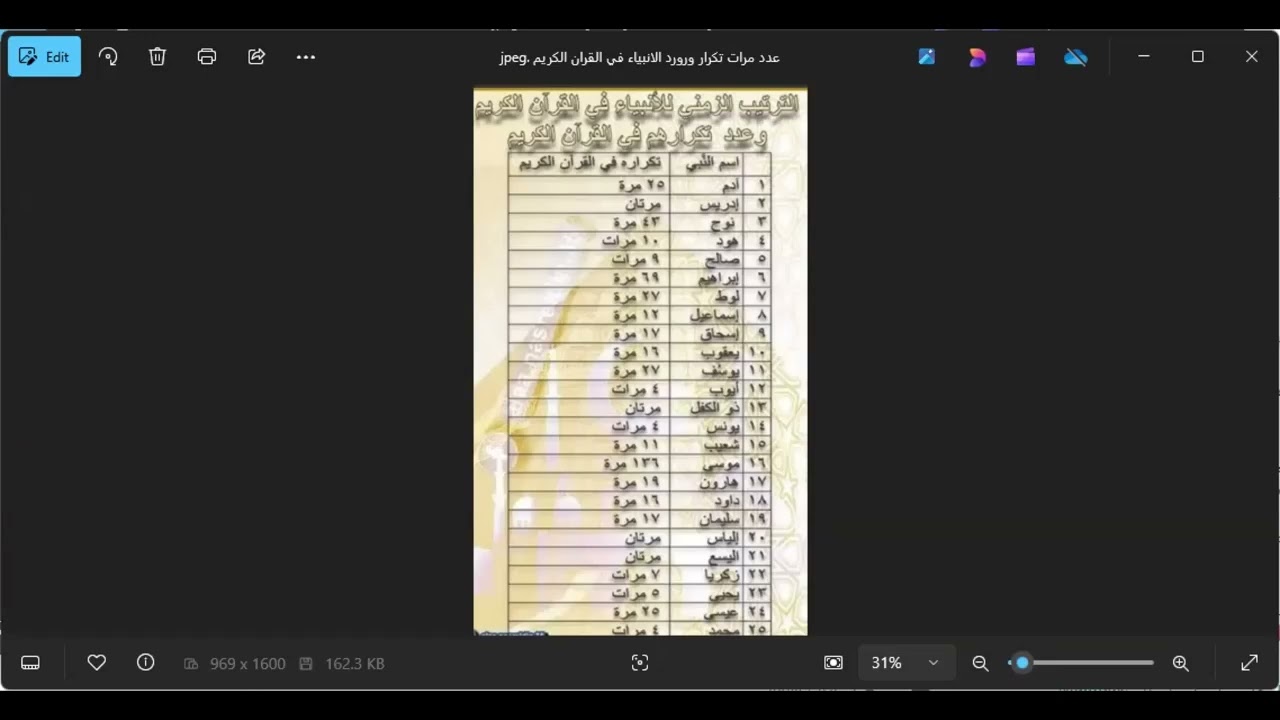 Edit
عدد مرات تكرار ورورد الانبياء في القران الكريم .jpeg
الترتيب الزمني للأنبياء في القرآن الكريم
وعدد تكرارهم في القرآن الكريم
اسم النَّبي تكراره في القرآن الكريم
١ آدم ٢٥ مرة
٢ إدريس مرتان
٣ نوح ٤٣ مرة
٤ هود ١٠ مرات
٥ صالح ٩ مرات
٦ إبراهيم ٦٩ مرة
٧ لوط ٢٧ مرة
٨ إسماعيل ١٢ مرة
٩ إسحاق ١٧ مرة
١٠ يعقوب ١٦ مرة
١١ يوسُف ٢٧ مرة
١٢ أيوب ٤ مرات
١٣ ذو الكفل مرتان
١٤ يونس ٤ مرات
١٥ شعيب ١١ مرة
١٦ موسى ١٣٦ مرة
١٧ هارون ١٩ مرة
١٨ داود ١٦ مرة
١٩ سليمان ١٧ مرة
٢٠ إلياس مرتان
٢١ اليسع مرتان
٢٢ زكريا ٧ مرات
٢٣ يحيى ٥ مرات
٢٤ عيسى ٢٥ مرة
٢٥ محمد ٤ مرات
969 x 1600 162.3 KB 31%